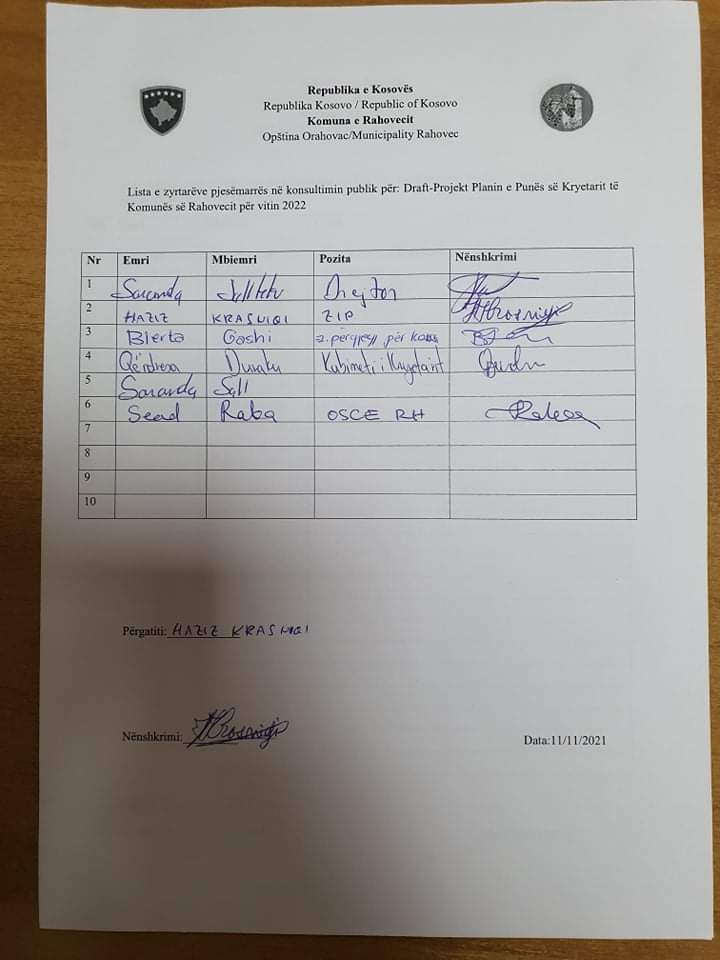 Republika e Kosovës
Republika Kosovo / Republic of Kosovo
Komuna e Rahovecit
Opština Orahovac/Municipality Rahovec
Lista e zyrtarëve pjesëmarrës në konsultimin publik për: Draft-Projekt Planin e Punës së Kryetarit të
Komunës së Rahovecit për vitin 2022
Nr Emri Mbiemri Pozita Nënshkrimi
1 Saranda Drejtor
2 HAZIZ KRASNIQI ZIP HKrasniqi
3 Blerta Gashi për
4 Qëndresa Duraku Kabineti i Kryetarit
5 Saranda Syll
6 Sead Raba OSCE RH Raba
7
8
9
10
Përgatiti: HAZIZ KRASNIQI
Nënshkrimi: HKrasniqi
Data:11/11/2021